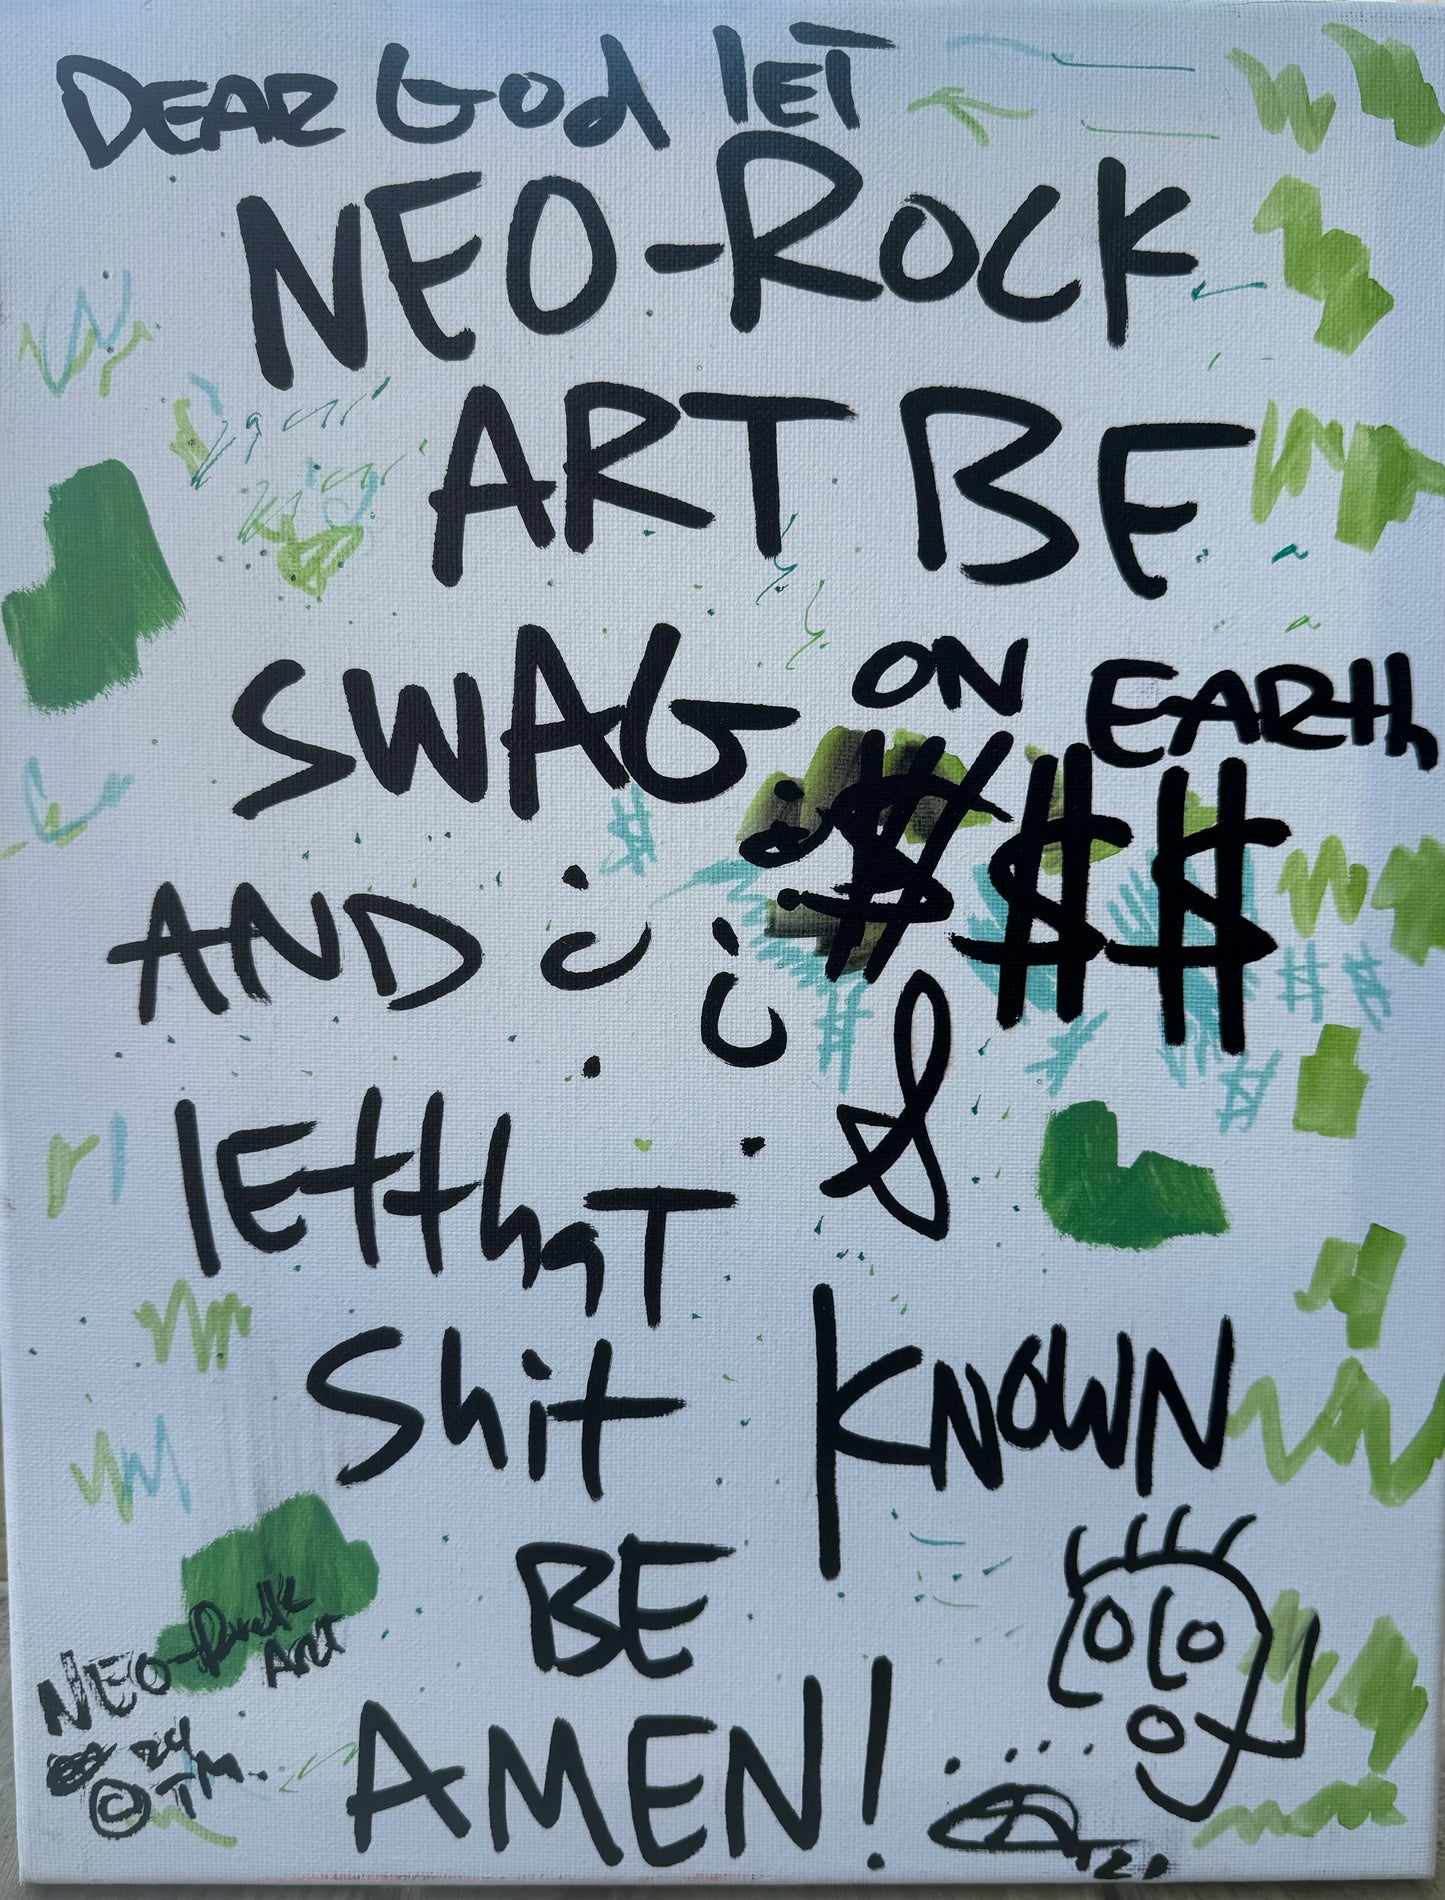 DEAR God lET
NEO-ROCK
ART BE
SWAG ON EARTH
$$$
AND
lEtthaT
Shit KNOWN
BE
AMEN!
NEO-Rock
ART
24
© TM.